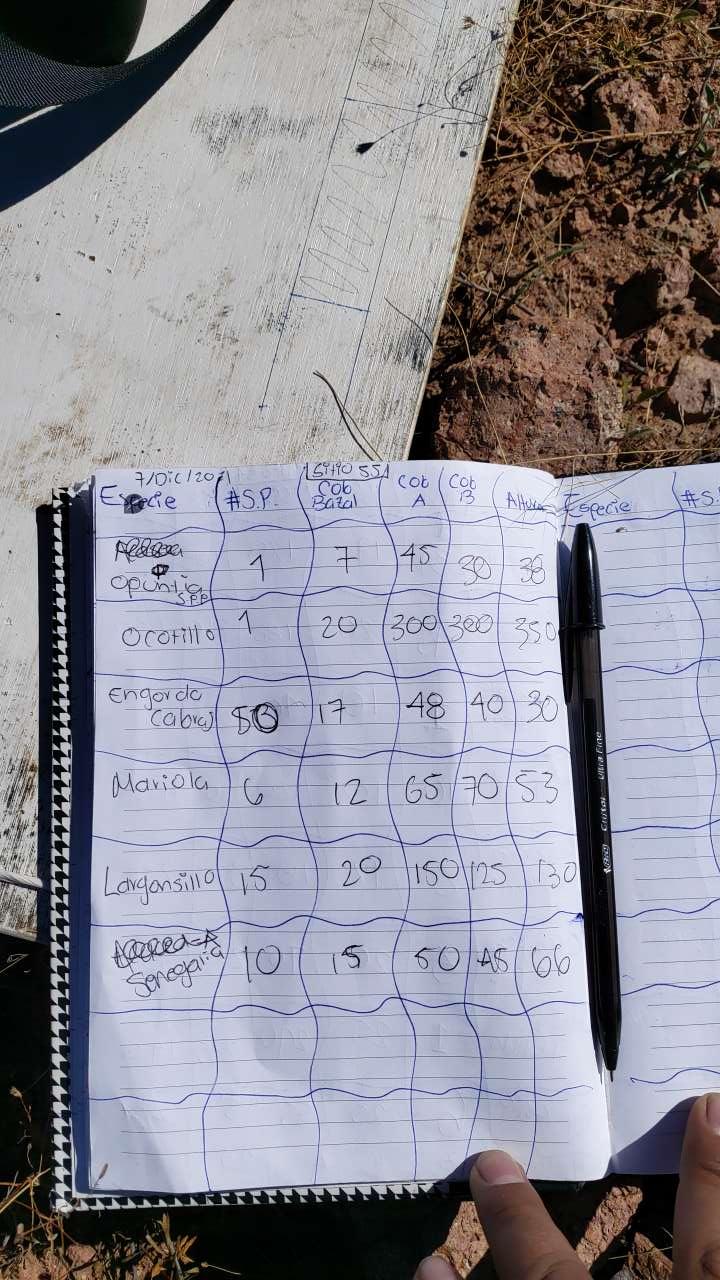 7/Dic/2021 Sitio 551
Especie #S.P. Cob Basal Cob A Cob B Altura Especie #S.P.
Opuntia spp 1 7 45 30 38
Ocotillo 1 20 300 300 350
Engorda Cabra 50 17 48 40 30
Mariola 6 12 65 70 53
Largonsillo 15 20 150 125 130
Senegalia 10 15 50 45 66
Cristal Ultra Fine